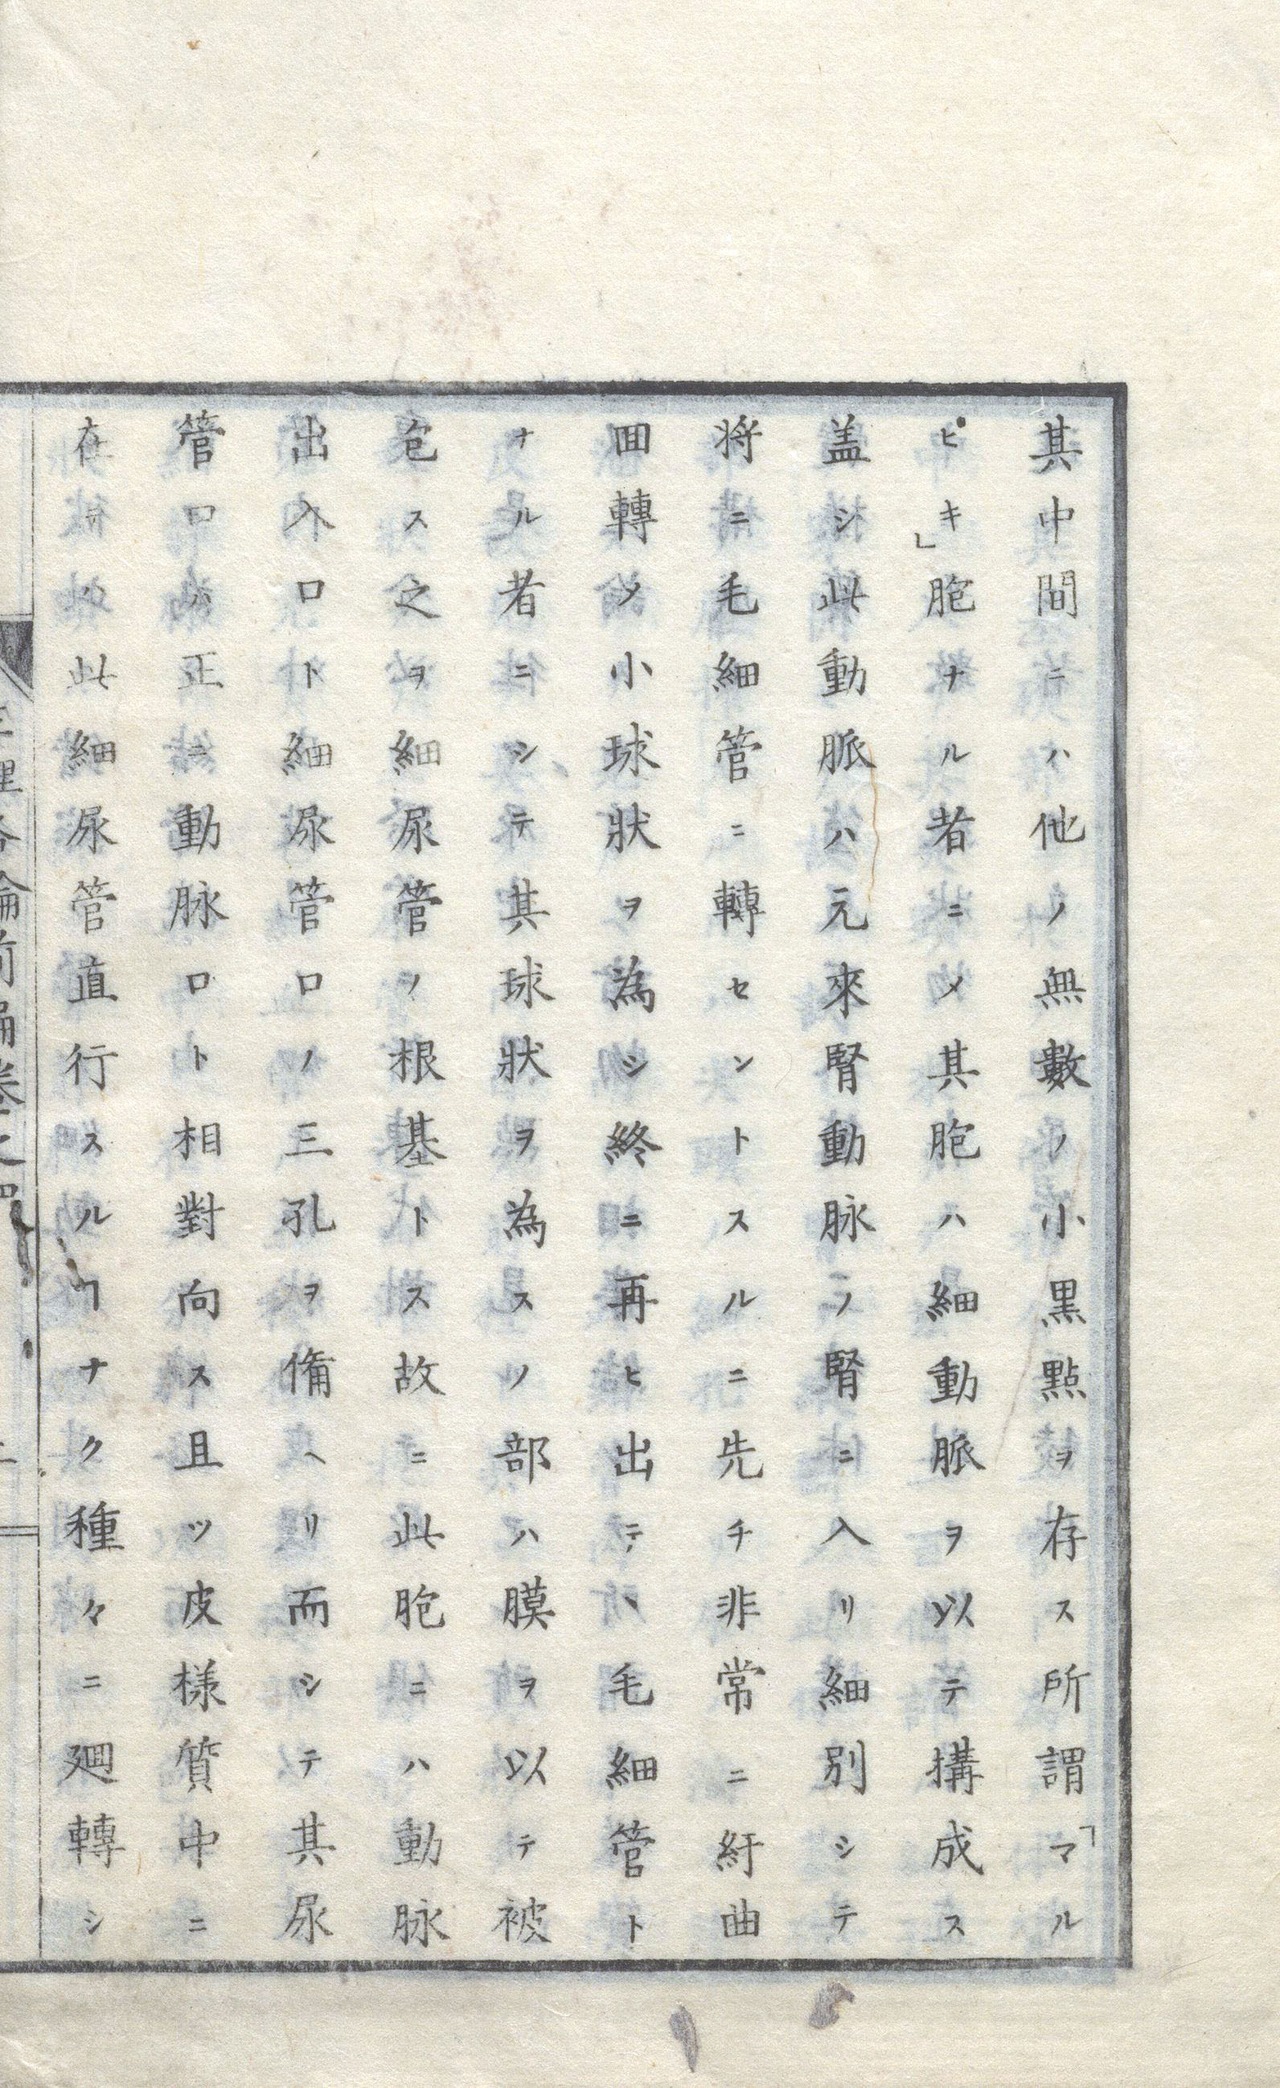 其中間ニハ他ノ無數ノ小黒點ヲ存ス所謂「マル
ピキ」胞ナル者ニメ其胞ハ細動脈ヲ以テ搆成ス
盖シ此動脈ハ元來腎動脉ノ腎ニ入リ細別シテ
將ニ毛細管ニ轉セントスルニ先チ非常ニ紆曲
囬轉ノ小球狀ヲ為シ終ニ再ヒ出テヽ毛細管ト
ナル者ニシテ其球狀ヲ為スノ部ハ膜ヲ以テ被
包ス之ヲ細尿管ノ根基トス故ニ此胞ニハ動脉
出入口ト細尿管口ノ三孔ヲ俻ヘリ而シテ其尿
管口ハ正ニ動脉口ト相對向ス且ツ皮様質中ニ
在ヰハ此細尿管直行スルヿナク種々ニ廻轉シ